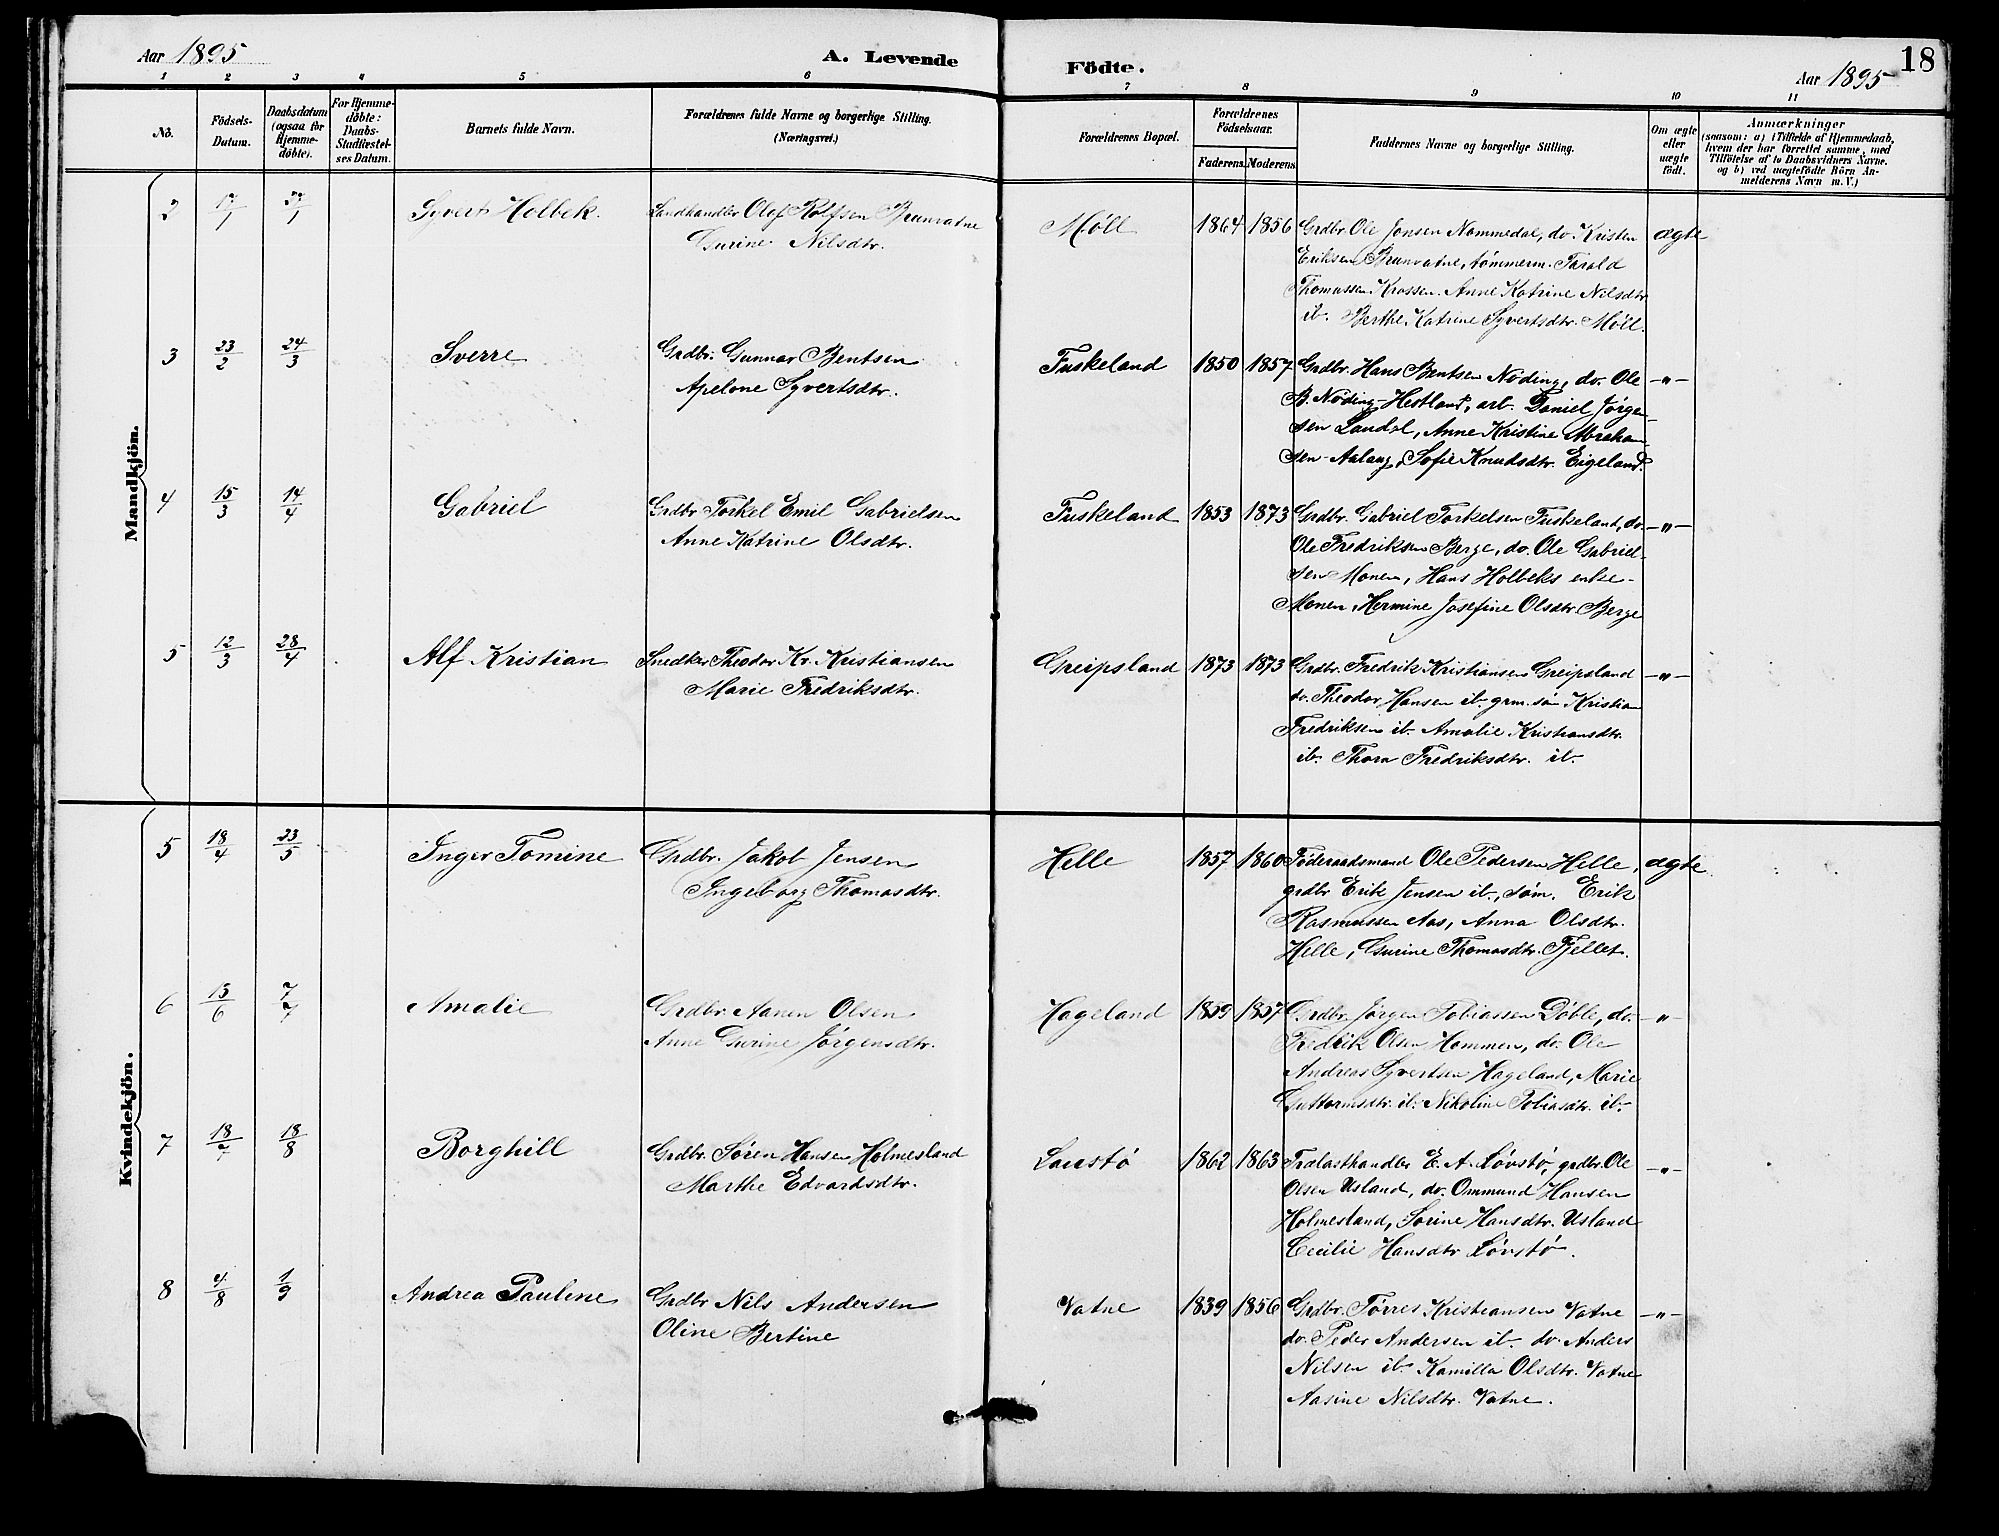 Aar 1895
A. Levende
Födte.
Aar 1895
18
1 2 3 4 5 6 7 8 9 10 11
No.
Födsels-
Datum.
Daabsdatum
(ogsaa för
Hjemme-
döbte).
For Hjemme-
döbte:
Daabs-
Stadfæstel-
ses Datum.
Barnets fulde Navn.
Forældrenes fulde Navne og borgerlige Stilling.
(Næringsvei.)
Forældrenes Bopæl.
Forældrenes
Födselsaar.
Faderens. Moderens.
Faddernes Navne og borgerlige Stilling.
Om ægte
eller
uægte
födt.
Anmærkninger
(saasom: a) i Tilfælde af Hjemmedaab,
hvem der har forrettet samme, med
Tilföielse af to Daabsvidners Navne.
og b) ved uægtefödte Börn An-
melderens Navn m. V.)
Mandkjön.
2 17/1 Syvert Holbek. Landhandler Olof Rolfsen Brunvatne
Gurine Nilsdtr.
Möll 1864 1856 Grdbr. Ole Jonsen Nommedal, do. Kristen ægte
Eriksen Brunvatne, tømmerm. Tarald
Thomassen Krossen. Anne Katrine Nilsdtr
ib. Berthe Katrine Syvertsdtr. Möll.
3 23/2 24/3 Sverre Grdbr. Gunnar Bentsen
Apelone Syvertsdtr.
Fuskeland 1850 1857 Grdbr. Hans Bentsen Nøding, do. Ole -"-
B. Nøding-Hestland, arb. Daniel Jørgen-
sen Landal, Anne Kristine Abraham-
sen-Aalang, Sofie Knudsdtr. Eigeland.
4 15/3 14/4 Gabriel Grdbr Torkel Emil Gabrielsen
Anne Katrine Olsdtr.
Fuskeland 1853 1873 Grdbr. Gabriel Torkelsen Fuskeland, do. -"-
Ole Fredriksen Berge, do. Ole Gabriel-
sen Monen, Hans Holbeks enke-
Monen, Hermine Josefine Olsdtr. Berge
5 12/3 28/4 Alf Kristian Snedker Theodor Kr. Kristiansen
Marie Fredriksdtr.
Greipsland 1873 1873 Grdbr. Fredrik Kristiansen Greipsland -"-
do. Theodor Hansen ib. grm. søn Kristian
Fredriksen ib. Amalie Kristiansdtr.
ib. Thora Fredriksdtr. ib.
Kvindekjön.
5 18/4 23/5 Inger Tomine Grdbr. Jakob Jensen
Ingeborg Thomasdtr.
Helle 1857 1860 Føderaadsmand Ole Pedersen Helle, ægte
grdbr. Erik Jensen ib., søm. Erik
Rasmussen Aas, Anna Olsdtr.
Helle, Gurine Thomasdtr. Fjellet.
6 15/6 7/7 Amalie Grdbr. Aanen Olsen
Anne Gurine Jørgensdtr.
Hageland 1859 1857 Grdbr. Jørgen Tobiassen Døble, do. -"-
Fredrik Olsen Hommen, do. Ole
Andreas Syvertsen Hageland, Marie
Guttormsdtr. ib. Nikoline Tobiasdtr. ib.
7 18/7 18/8 Borghill Grdbr. Søren Hansen Holmesland
Marthe Edvardsdtr.
Laustø 1862 1863 Trælasthandler E. A. Løvstø, grdbr. Ole -"-
Olsen Usland, do. Ommund Hansen
Holmesland, Sorine Hansdtr. Usland
Cecilie Hansdtr Løvstø.
8 4/8 1/9 Andrea Pauline Grdbr Nils Andersen
Oline Bertine
Vatne 1839 1856 Grdbr. Tørres Kristiansen Vatne -"-
do. Peder Andersen ib. do. Anders
Nilsen ib. Kamilla Olsdtr. Vatne
Aasine Nilsdtr. Vatne.